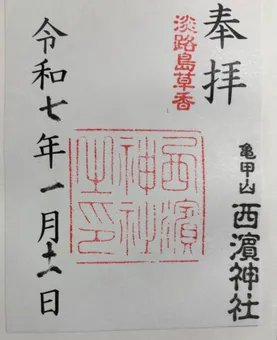 奉拝
淡路島草香
亀甲山
西濱神社
西濱
神社
之印
令和七年一月十一日